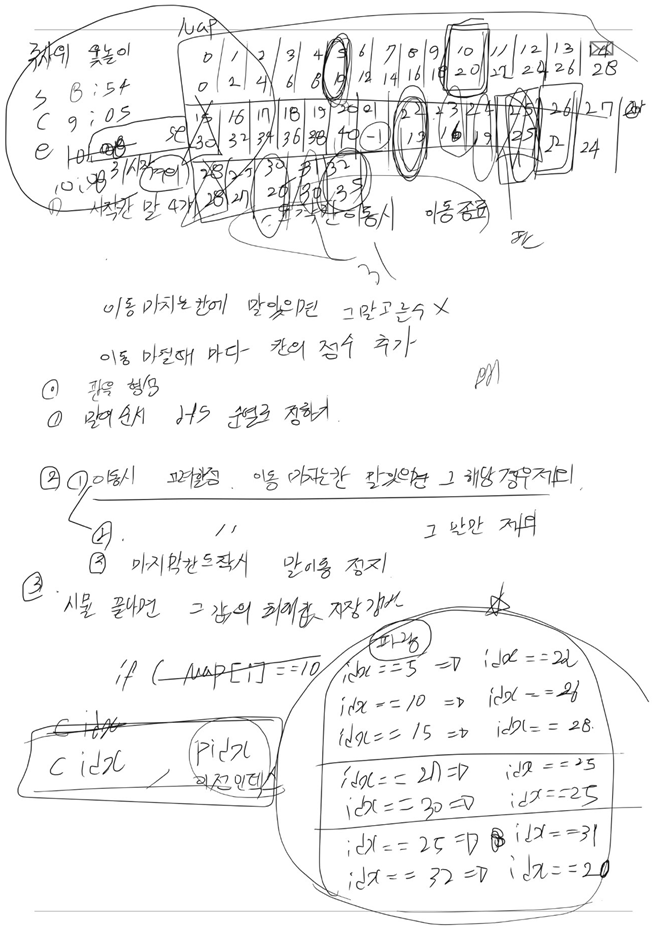 Map
주사위 윷놀이
0 1 2 3 4 5 6 7 8 9 10 11 12 13
0 2 4 6 8 10 12 14 16 18 20 22 24 26 28
S 8:54
C 9:05
e
15 16 17 18 19 20 21 22 23 24 25 26 27
30 32 34 36 38 40 -1 13 16 19 25 22 24
28 29 30 31 32
28 27 20 30 35
① 시작칸 말 4개
도착칸 이동시 이동종료
판
31
이동 마치는칸에 말있으면 그말고른수 X
이동 마칠때 마다 칸의 점수 추가
① 판을 형성
① 말의 순서 dfs 순열로 정하기.
② ① 이동시 고려할점. 이동 마치는칸 말있으면 그 해당경우제외.
②. 〃 그 말만 제외
③ 마지막칸도착시 말이동 정지
③ 시뮬 끝나면 그 값의 최대값 저장
if ( MAP[i] ==10
c idx
c idx , pidx
이전인덱스
파랑
idx ==5 => idx ==22
idx == 10 => idx == 26
idx == 15 => idx == 28
idx == 27 => idx ==25
idx == 30 => idx ==25
idx == 25 => idx ==31
idx == 32 => idx ==20